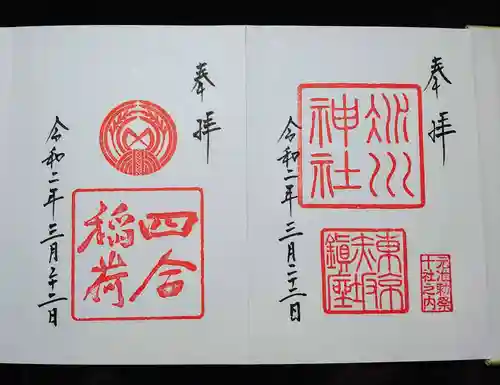 奉拝
氷川神社
東京赤坂鎮座
元准勅祭十社之内
令和二年三月二十二日
奉拝
四合稲荷
令和二年三月二十二日